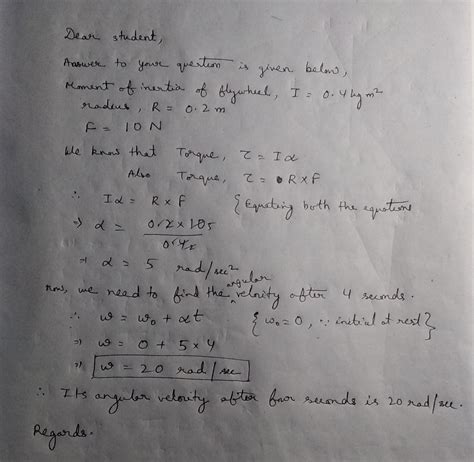 Dear student,
Answer to your question is given below,
Moment of inertia of flywheel, I = 0.4 kg m²
radius, R = 0.2 m
F = 10 N
We know that Torque, τ = Iα
Also Torque, τ = R×F
∴ Iα = R×F { Equating both the equations
⇒ α = 0.2 × 10 5
0.4 2
⇒ α = 5 rad/sec²
now, we need to find the angular velocity after 4 seconds.
∴ ω = ω₀ + αt { ω₀ = 0, ∵ initial at rest }
⇒ ω = 0 + 5 × 4
⇒ ω = 20 rad/sec
∴ Its angular velocity after four seconds is 20 rad/sec.
Regards.